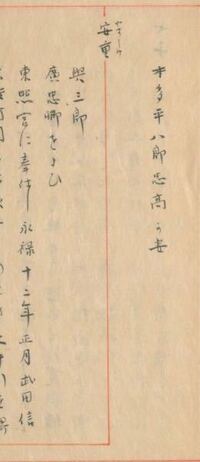 本多平八郎忠高の妻
安重
與三郎
廣忠卿をよび
東照宮に奉仕し永禄十二年正月武田信